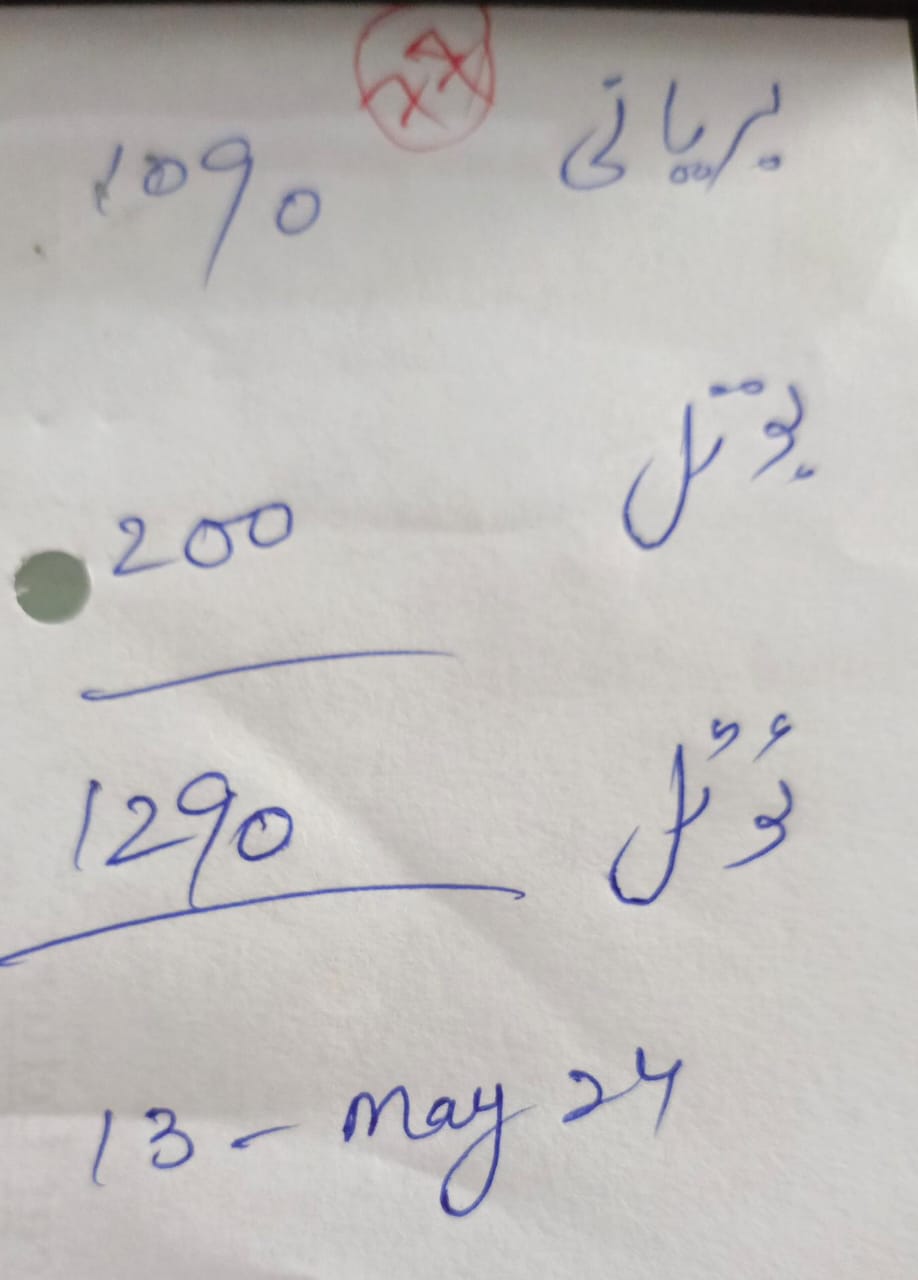 بریانی 1090
بوتل 200
ٹوٹل 1290
13 - May 24